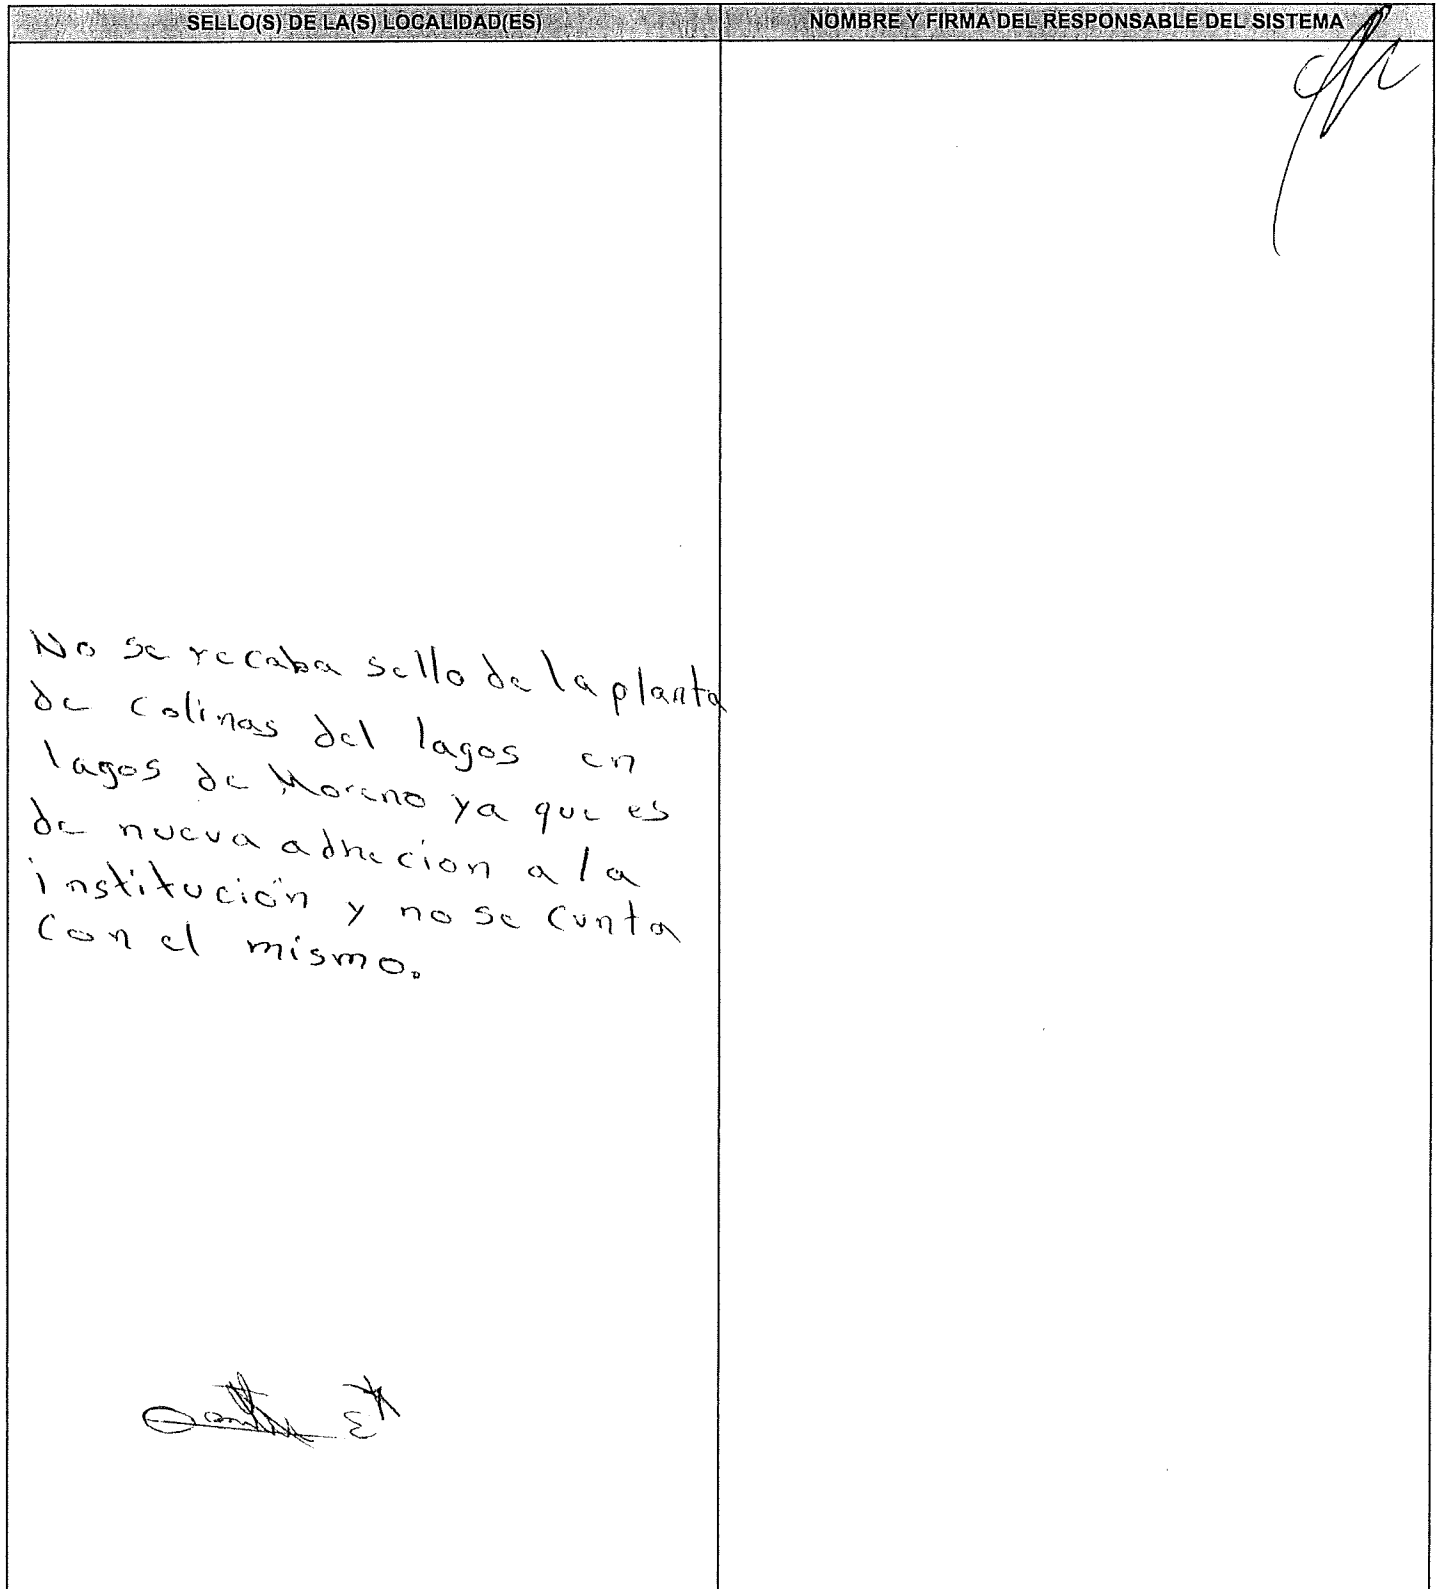 SELLO(S) DE LA(S) LOCALIDAD(ES)
NOMBRE Y FIRMA DEL RESPONSABLE DEL SISTEMA
No se recaba sello de la planta
de Colinas del lagos en
lagos de Moreno ya que es
de nueva adhecion a la
institución y no se cunta
Con el mismo.